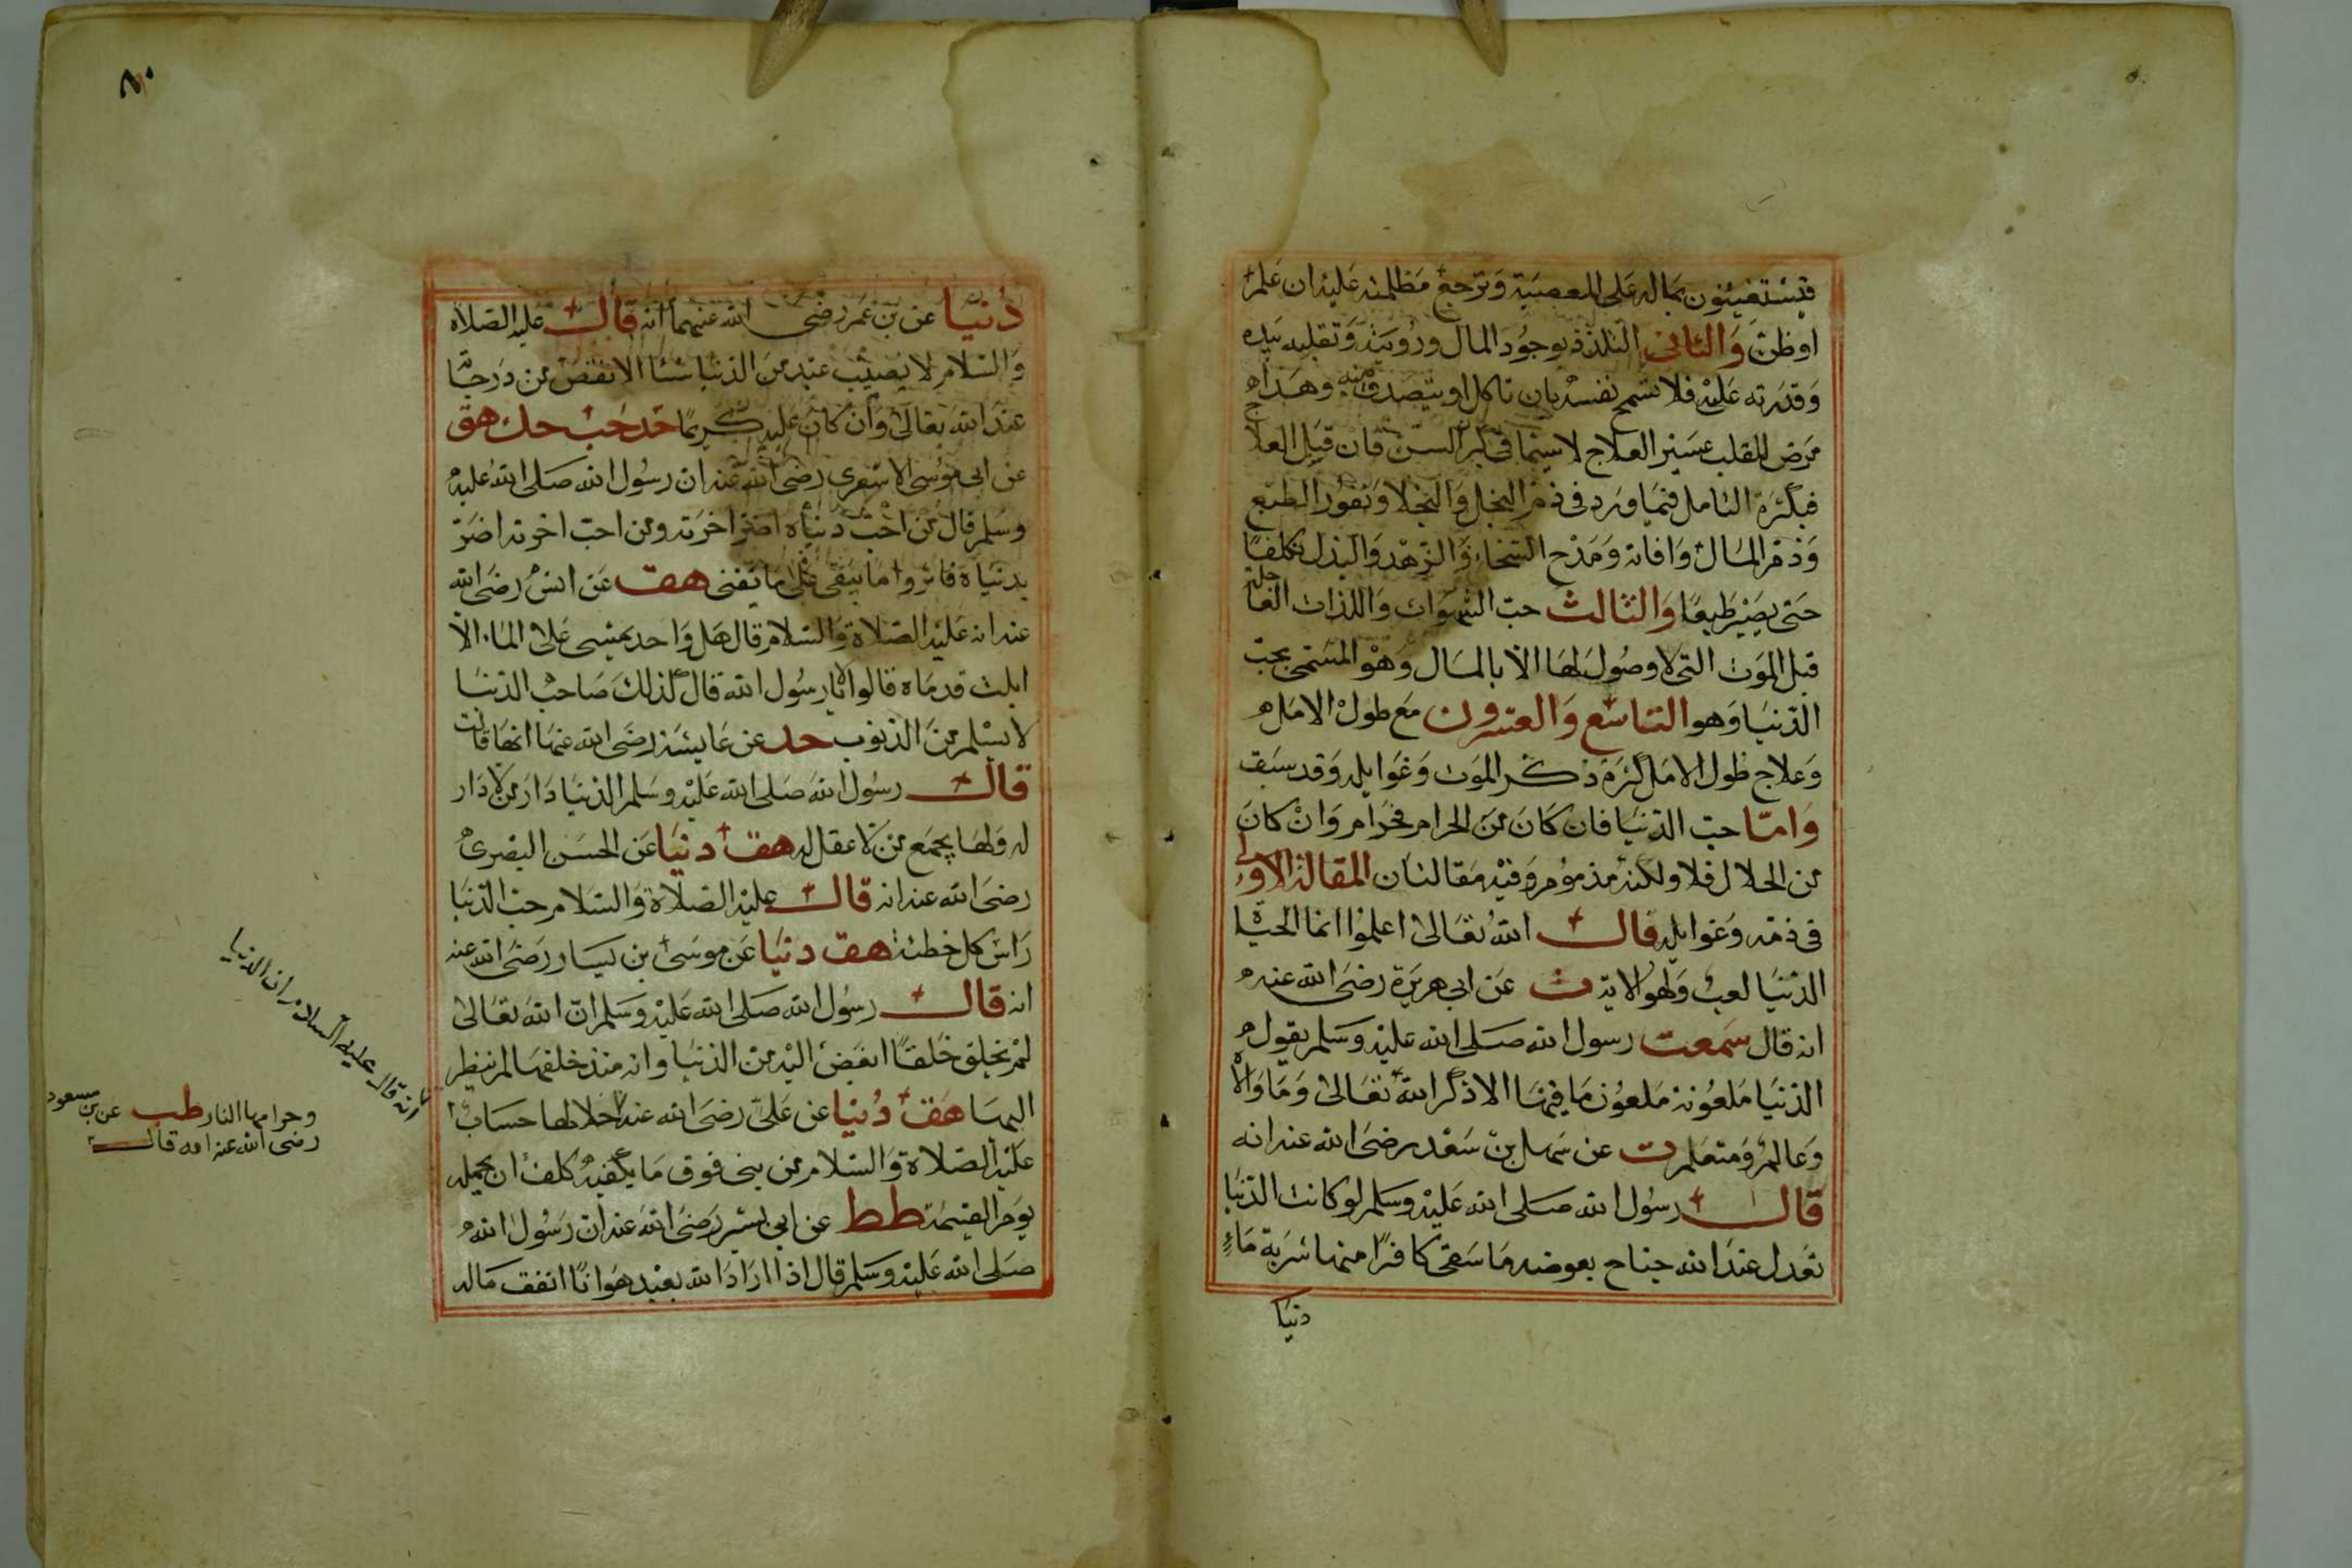 فيستعينون بماله على المعصية وترجع مظلمته عليه ان علم
او ظن والثانى التلذذ بوجود المال ورويته وتقليبه بيده
وقدرته عليه فلا تسمح نفسه بان تاكل او يتصدق منه وهذا
مرض للقلب عسير العلاج لا سيما فى كبر السن فان قبل العلاج
فبكثرة التامل فيما ورد فى ذم البخل والبخلا ونفور الطبع
وذم المال وافاته ومدح السخاء والزهد والبذل تكلفا
حتى يصير طبعا والثالث حب الشهوات واللذات العاجلة
قبل الموت التى لا وصول لها الا بالمال وهو المسمى بحب
الدنيا وهو التاسع والعشرون مع طول الامل
وعلاج طول الامل كثرة ذكر الموت وغوايله وقد سبق
واما حب الدنيا فان كان من الحرام فحرام وان كان
من الحلال فلا ولكنه مذموم وفيه مقالتان المقالة الاولى
فى ذمه وغوايله قال الله تعالى اعلموا انما الحياة
الدنيا لعب ولهو الاية ت عن ابى هريرة رضى الله عنه
انه قال سمعت رسول الله صلى الله عليه وسلم يقول
الدنيا ملعونة ملعون ما فيها الا ذكر الله تعالى وما والاه
وعالم ومتعلم ت عن سهل بن سعد رضى الله عنه انه
قال رسول الله صلى الله عليه وسلم لو كانت الدنيا
تعدل عند الله جناح بعوضه ما سقى كافرا منها شربة ماء
دنيا
دنيا عن بن عمر رضى الله عنهما انه قال عليه الصلاه
والسلام لا يصيب عبد من الدنيا شئا الا نقص من درجتا
عند الله تعالى وان كان عليه كريما حد حب حك هق
عن ابى موسى الاشعرى رضى الله عنه ان رسول الله صلى الله عليه
وسلم قال من احب دنياه اضر اخرته ومن احب اخرته اضر
بدنياه فاثروا ما يبقى على ما يفنى هق عن انس رضى الله
عنه انه عليه الصلاة والسلام قال هل واحد يمشى على الماء الا
ابلت قدماه قالوا لا يا رسول الله قال كذلك صاحب الدنيا
لا يسلم من الذنوب حد عن عايشة رضى الله عنها انها قالت
قال رسول الله صلى الله عليه وسلم الدنيا دار من لا دار
له ولها يجمع من لا عقل له هق دنيا عن الحسن البصرى
رضى الله عنه انه قال عليه الصلاة والسلام حب الدنيا
راس كل خطئة هق دنيا عن موسى بن يسار رضى الله عنه
انه قال رسول الله صلى الله عليه وسلم ان الله تعالى
لم يخلق خلقا ابغض اليه من الدنيا وانه منذ خلقها لم ينظر
اليها هق دنيا عن على رضى الله عنه حلالها حساب
عليه الصلاة والسلام من بنى فوق ما يكفيه كلف ان يحمله
يوم القيمة طط عن ابى بشير رضى الله عنه ان رسول الله
صلى الله عليه وسلم قال اذا اراد الله بعبد هوانا انفق ماله
انه قال عليه السلام ان الدنيا
وحرامها النار طب عن بن مسعود
رضى الله عنه انه قال